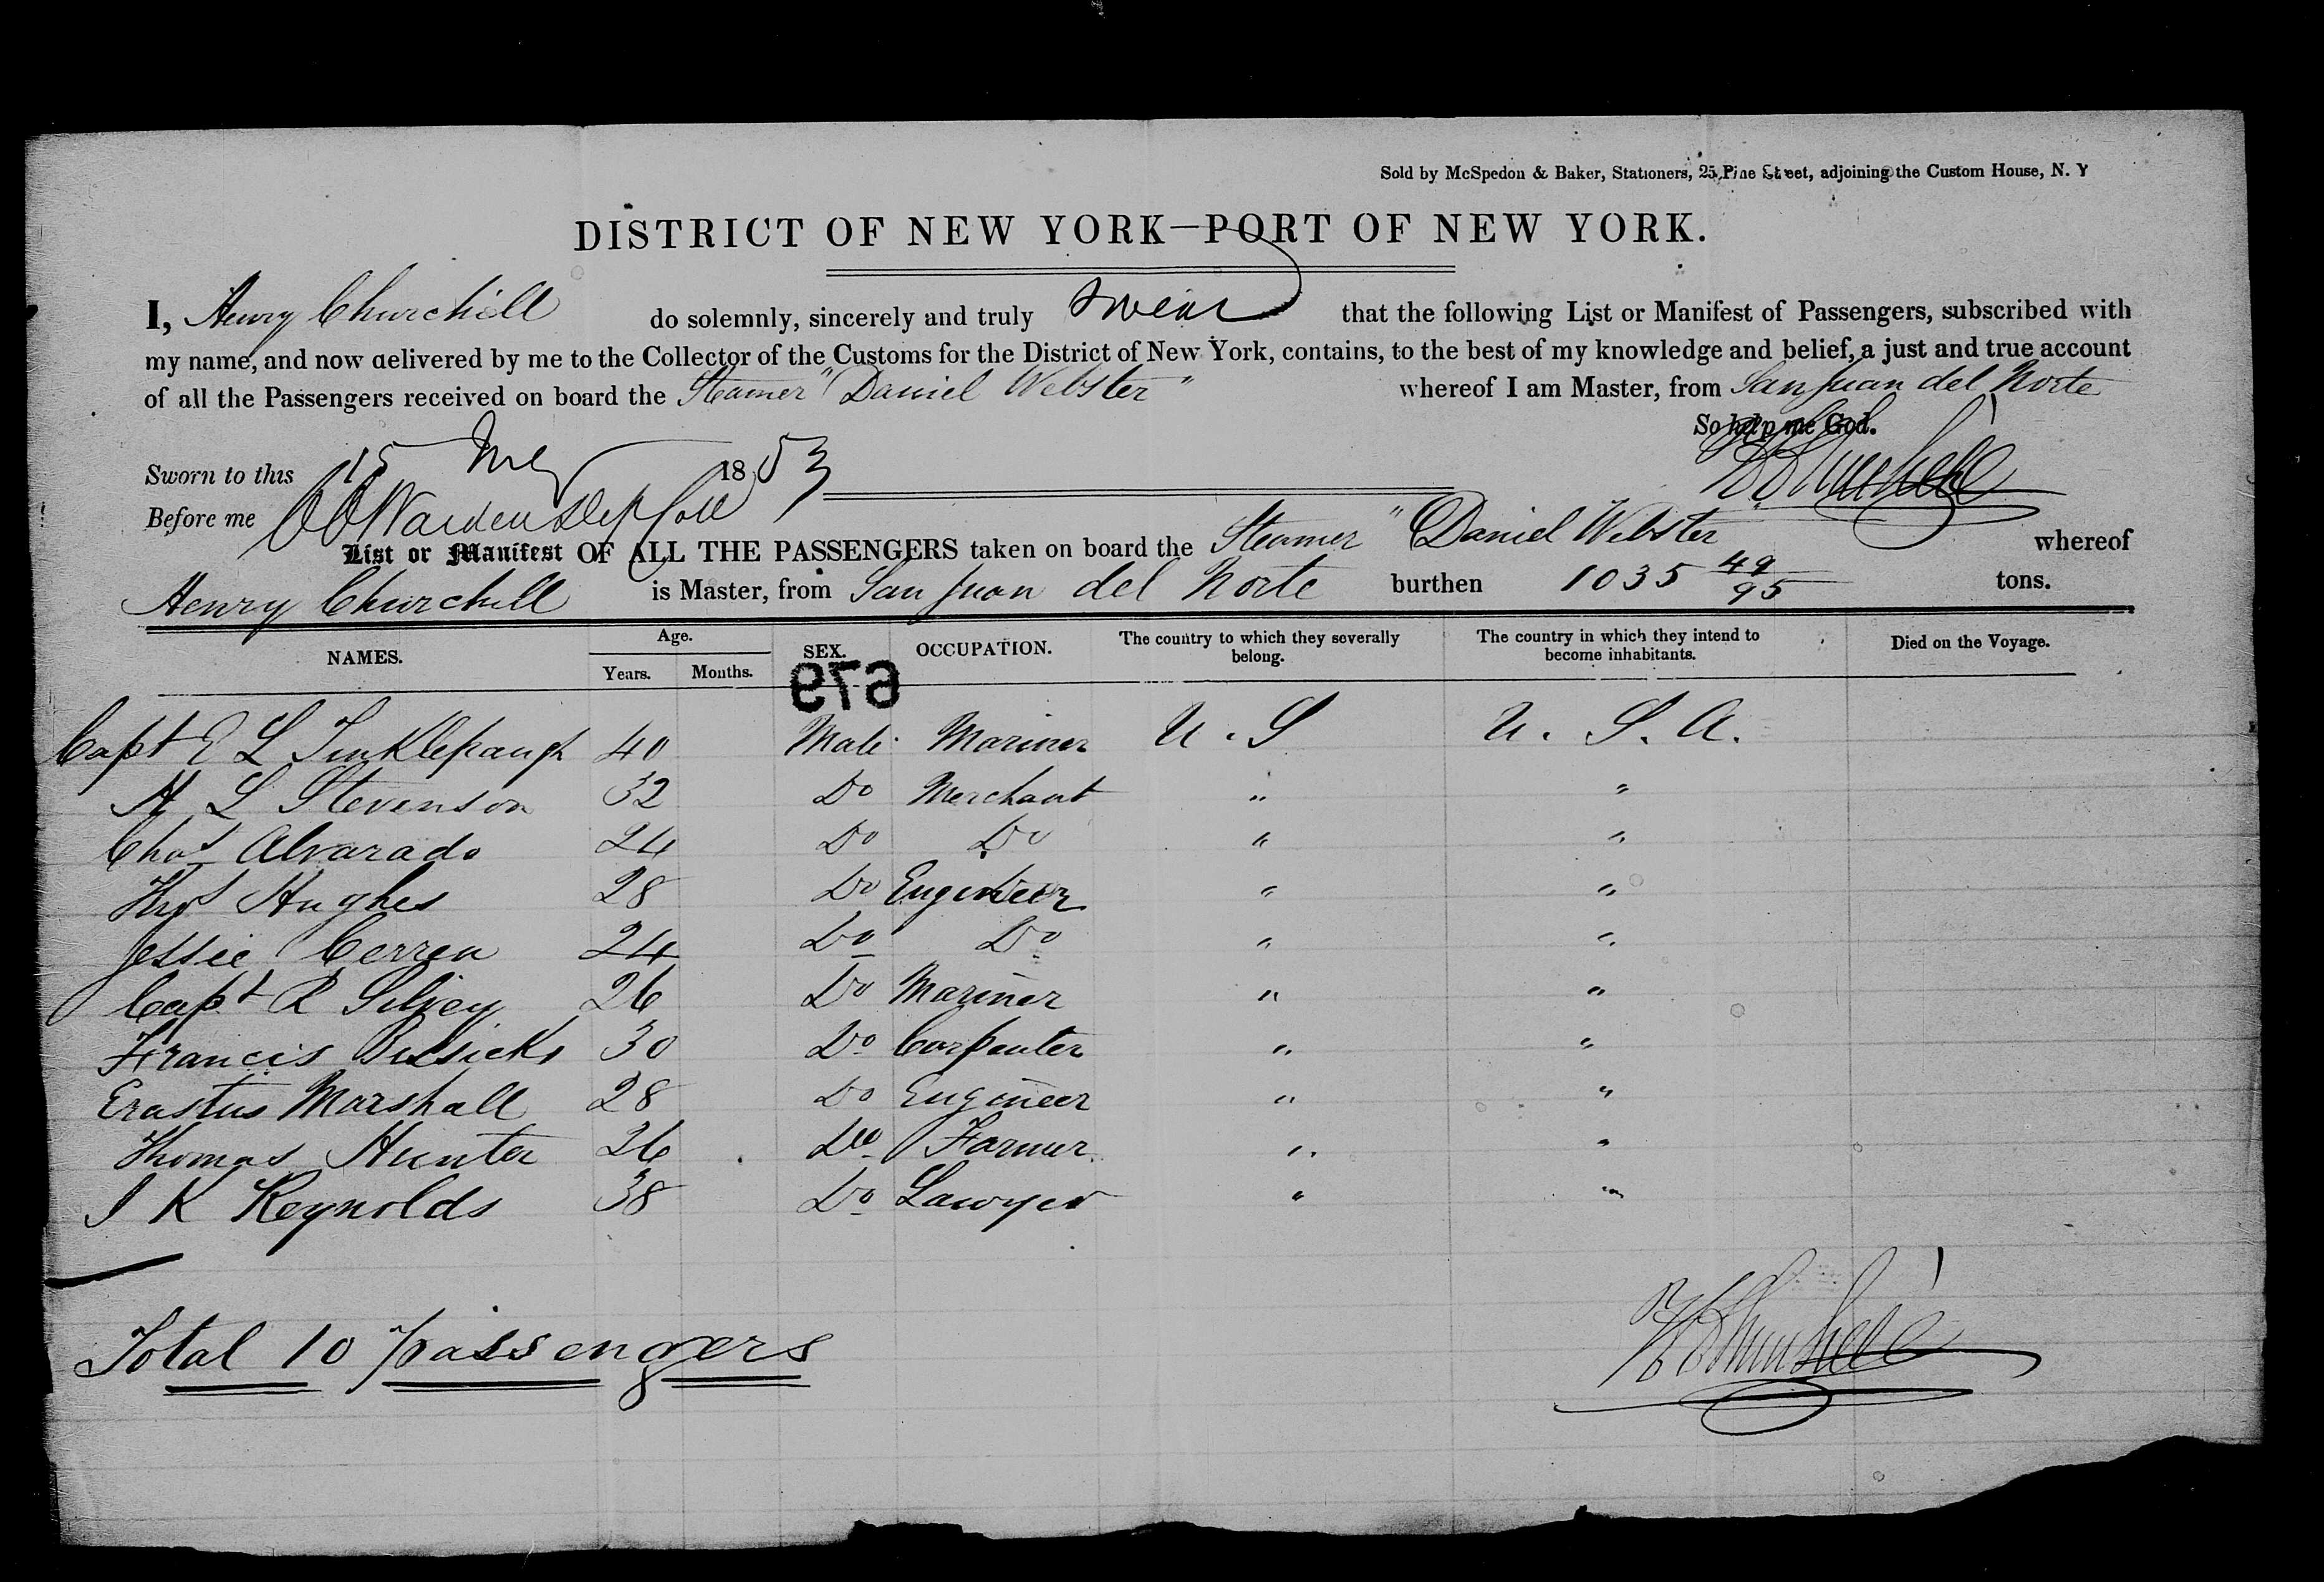 Sold by McSpedon & Baker, Stationers, 25 Pine Street, adjoining the Custom House, N. Y
DISTRICT OF NEW YORK—PORT OF NEW YORK.
I, Henry Churchill do solemnly, sincerely and truly swear that the following List or Manifest of Passengers, subscribed with
my name, and now delivered by me to the Collector of the Customs for the District of New York, contains, to the best of my knowledge and belief, a just and true account
of all the Passengers received on board the Steamer "Daniel Webster" whereof I am Master, from San Juan del Norte
So help me God.
Sworn to this 15 1853
Before me
List or Manifest OF ALL THE PASSENGERS taken on board the Steamer "Daniel Webster whereof
Henry Churchill is Master, from San Juan del Norte burthen 1035 49/95 tons.
NAMES. Age. Years. Months. SEX. OCCUPATION. The country to which they severally belong. The country in which they intend to become inhabitants. Died on the Voyage.
679
Capt E L Tinklepaugh 40 Male Mariner U. S U. S. A.
H L Stevenson 32 Do Merchant " "
Chas Alvarado 24 Do Do " "
Thos Hughes 28 Do Engineer " "
Jessie 24 Do Do " "
Capt R 26 Do Mariner " "
Francis 30 Do Carpenter " "
Erastus Marshall 28 Do Engineer " "
Thomas Hunter 26 Do Farmer " "
I K Reynolds 38 Do Lawyer " "
Total 10 passengers